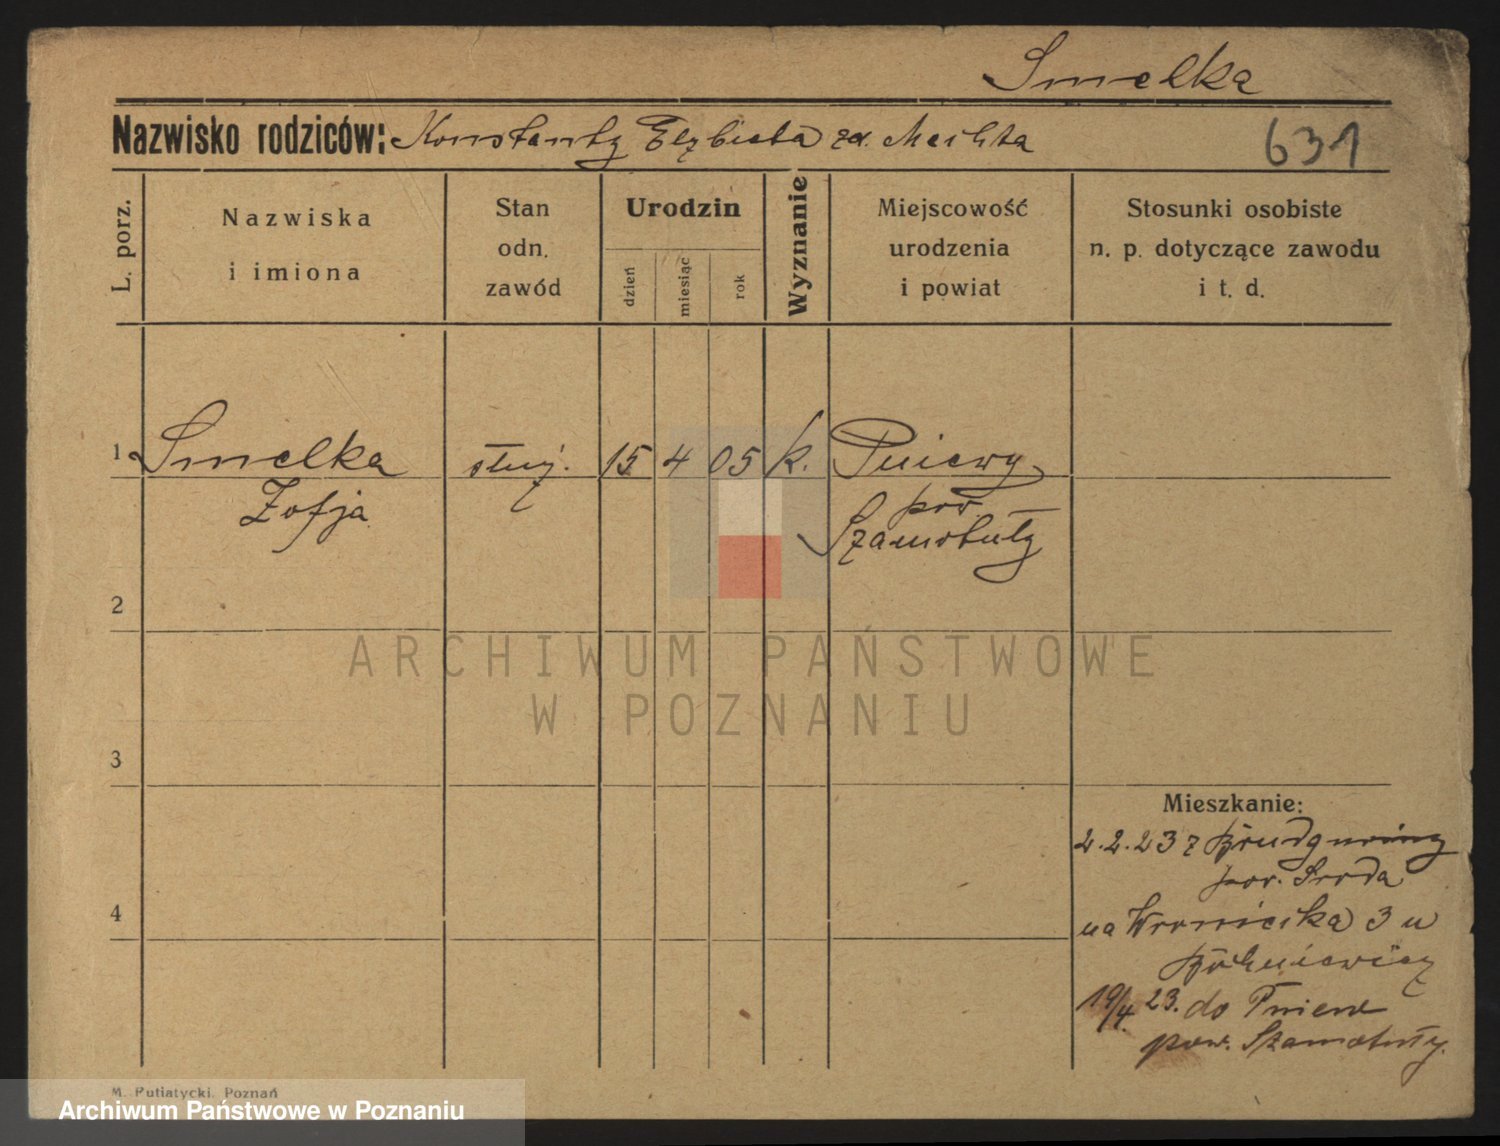 Smelka
Nazwisko rodziców: Konstanty Elżbieta zd.
631
L. porz.
Nazwiska
i imiona
Stan
odn.
zawód
Urodzin
dzień
miesiąc
rok
Wyznanie
Miejscowość
urodzenia
i powiat
Stosunki osobiste
n. p. dotyczące zawodu
i t. d.
1 Smelka służ. 15 4 05 k. Pniewy
Zofja pow.
Szamotuły
2
ARCHIWUM PAŃSTWOWE
W POZNANIU
3
Mieszkanie:
2.2.23 z
pow. Środa
4
na Wroniecka 3 u
19/4. 23. do Pniew
pow. Szamotuły.
M. Putiatycki, Poznań
Archiwum Państwowe w Poznaniu